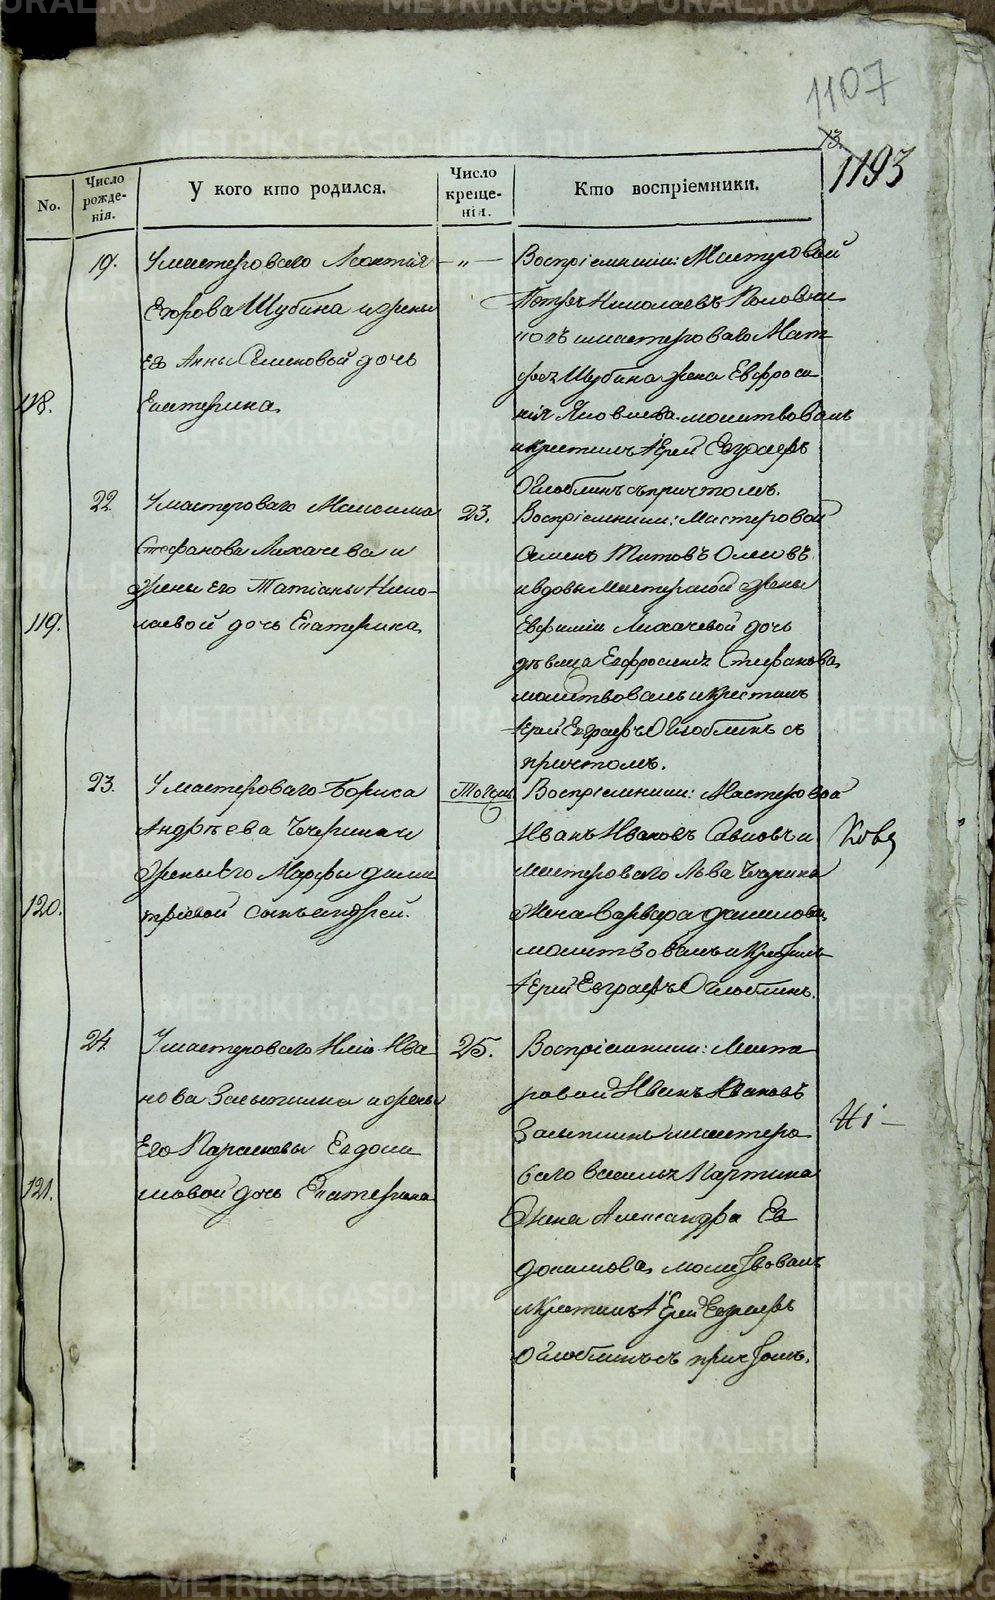 1107
13.
1193
No.
Число рожде-нія.
У кого кто родился.
Число креще-нія.
Кто воспріемники.
118.
19.
У мастероваго
Егорова Шубина и жены
Его Анны Семеновой дочь
Екатерина
— „ —
Воспріемники: Мастеровой
Петръ Николаевъ
и мастероваго
Шубина жена Евфроси
нія Яковлева молитвовалъ
и крестилъ Іерей Евграфъ
Оглоблинъ съ причтомъ.
119.
22.
У мастероваго Максима
Стефанова Лихачева и
жены Его Татіаны Нико-
лаевой дочь Екатерина
23.
Воспріемники: Мастеровой
Семенъ Титовъ
и вдовы Мастерской жены
Евфиміи Лихачевой дочь
дѣвица Евфросинія Стефанова
молитвовалъ и крестилъ
Іерей Евграфъ Оглоблинъ съ
причтомъ.
120.
23.
У мастероваго Бориса
Андрѣева и
Жены Его Марфы Дими
тріевой сынъ Андрей.
Тогожъ
Воспріемники: Мастеровой
Иванъ Ивановъ и
мастероваго Льва
Жена Варвара Данилова
молитвовалъ и крестилъ
Іерей Евграфъ Оглоблинъ.
121.
24.
У мастероваго Ива
нова Засыпкина и жены
Его Парасковьи Евдоки
мовой дочь Екатерина
25.
Воспріемники: Масте
ровой Иванъ Ивановъ
Засыпкинъ и мастеро
ваго
Жена Александра Ев
докимова, молитвовалъ
и крестилъ Іерей Евграфъ
Оглоблинъ съ причтомъ.
METRIKI.GASO-URAL.RU